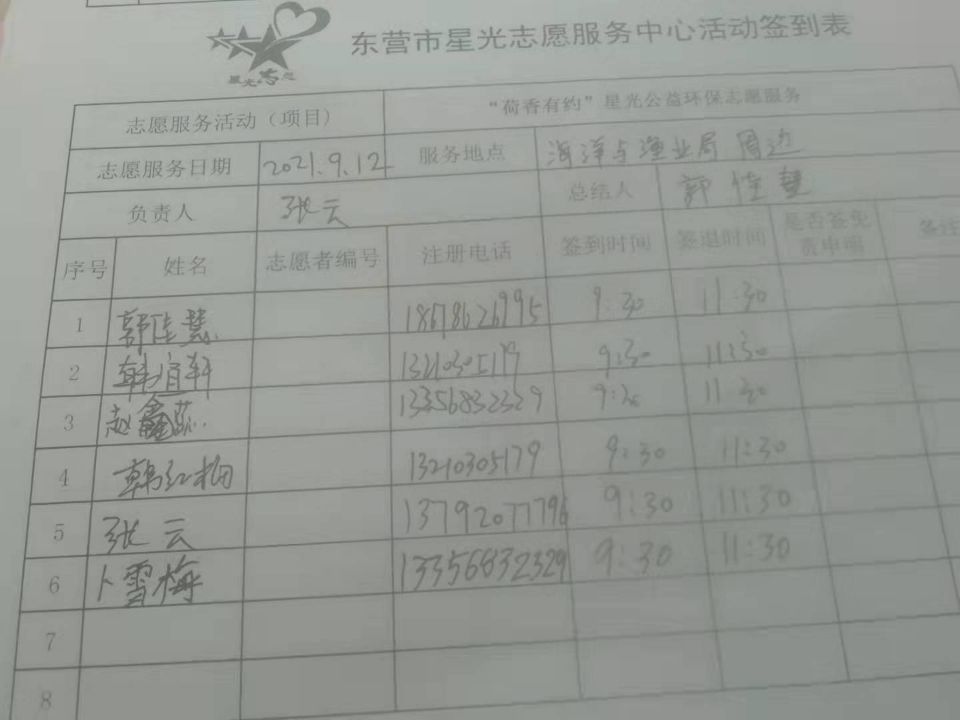 星光志愿
东营市星光志愿服务中心活动签到表
志愿服务活动（项目） “荷香有约”星光公益环保志愿服务
志愿服务日期 2021.9.12 服务地点 海洋与渔业局周边
负责人 张云 总结人 郭佳慧
序号 姓名 志愿者编号 注册电话 签到时间 签退时间 是否签免责申明 备注
1 郭佳慧 18678626995 9:30 11:30
2 韩 轩 13210305179 9:30 11:30
3 赵鑫蕊 13356832329 9:30 11:30
4 韩红梅 13210305179 9:30 11:30
5 张云 13792077796 9:30 11:30
6 卜雪梅 13356832329 9:30 11:30
7
8